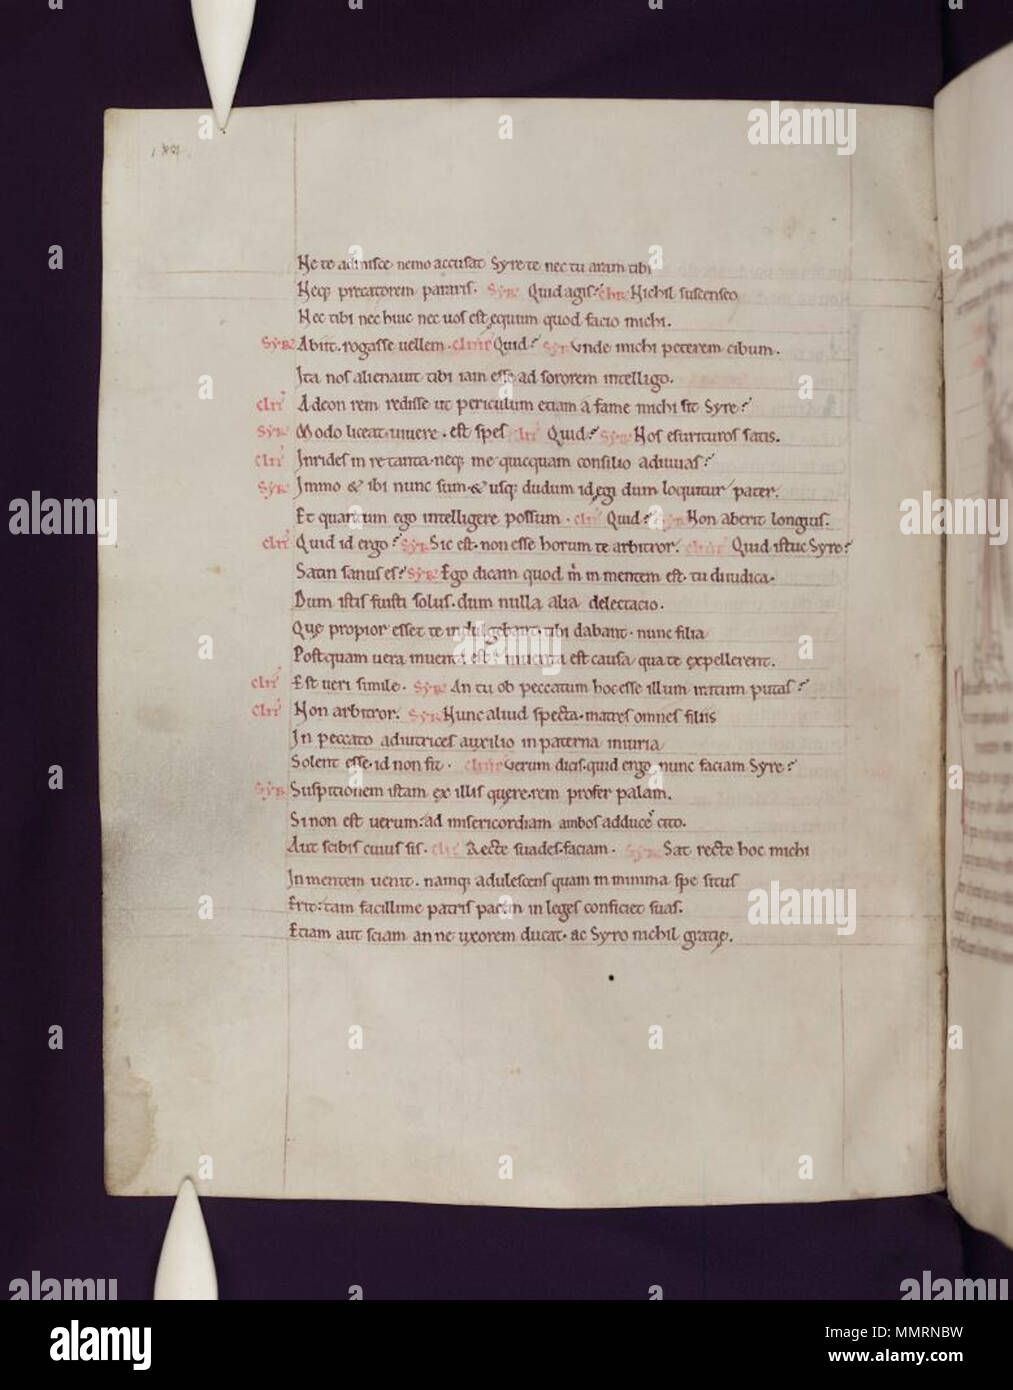 Ne te admisce nemo accusat Syre te nec tu aram tibi
Neq; precatorem pararis. Syr Quid agis? chr Nichil suscenseo
Nec tibi nec huic nec uos est equum quod facio michi.
Syr Abiit. rogasse uellem. clin Quid? Syr Vnde michi peterem cibum.
Ita nos alienauit tibi iam esse ad sororem intelligo.
clit Adeon rem redisse ut periculum etiam a fame michi sit Syre?
Syr Modo liceat uiuere. est spes clit Quid? Syr Nos esurituros satis.
clit Inrides in re tanta. neq; me quicquam consilio adiuuas?
Syr Immo & ibi nunc sum. & usq; dudum id egi dum loquitur pater.
Et quantum ego intelligere possum. clit Quid? Syr Non aberit longius.
clit Quid id ergo? Syr Sic est. non esse horum te arbitror. clit Quid istuc Syre?
Satin sanus es? Syr Ego dicam quod m̄ in mentem est. tu diiudica.
Dum istis fuisti solus. dum nulla alia delectacio.
Que propior esset te indulgebant. tibi dabant. nunc filia
Postquam uera inuenta est inuenta est causa qua te expellerent.
clit Est ueri simile. Syr An tu ob peccatum hoc esse illum iratum putas?
clit Non arbitror. Syr Nunc aliud specta. matres omnes filiis
In peccato adiutrices auxilio in paterna iniuria
Solent esse. id non fit. clit Verum dicis. quid ergo nunc faciam Syre?
Syr Suspitionem istam ex illis quere. rem profer palam.
Si non est uerum: ad misericordiam ambos adduces cito.
Aut scibis cuius sis. clit Recte suades. faciam. Syr Sat recte hoc michi
In mentem uenit. namq; adulescens quam in minima spe situs
Erit: tam facillime patris pacem in leges conficiet suas.
Etiam aut sciam an ne uxorem ducat. ac Syro nichil gratie.
alamy
Image ID: MMRNBW
www.alamy.com